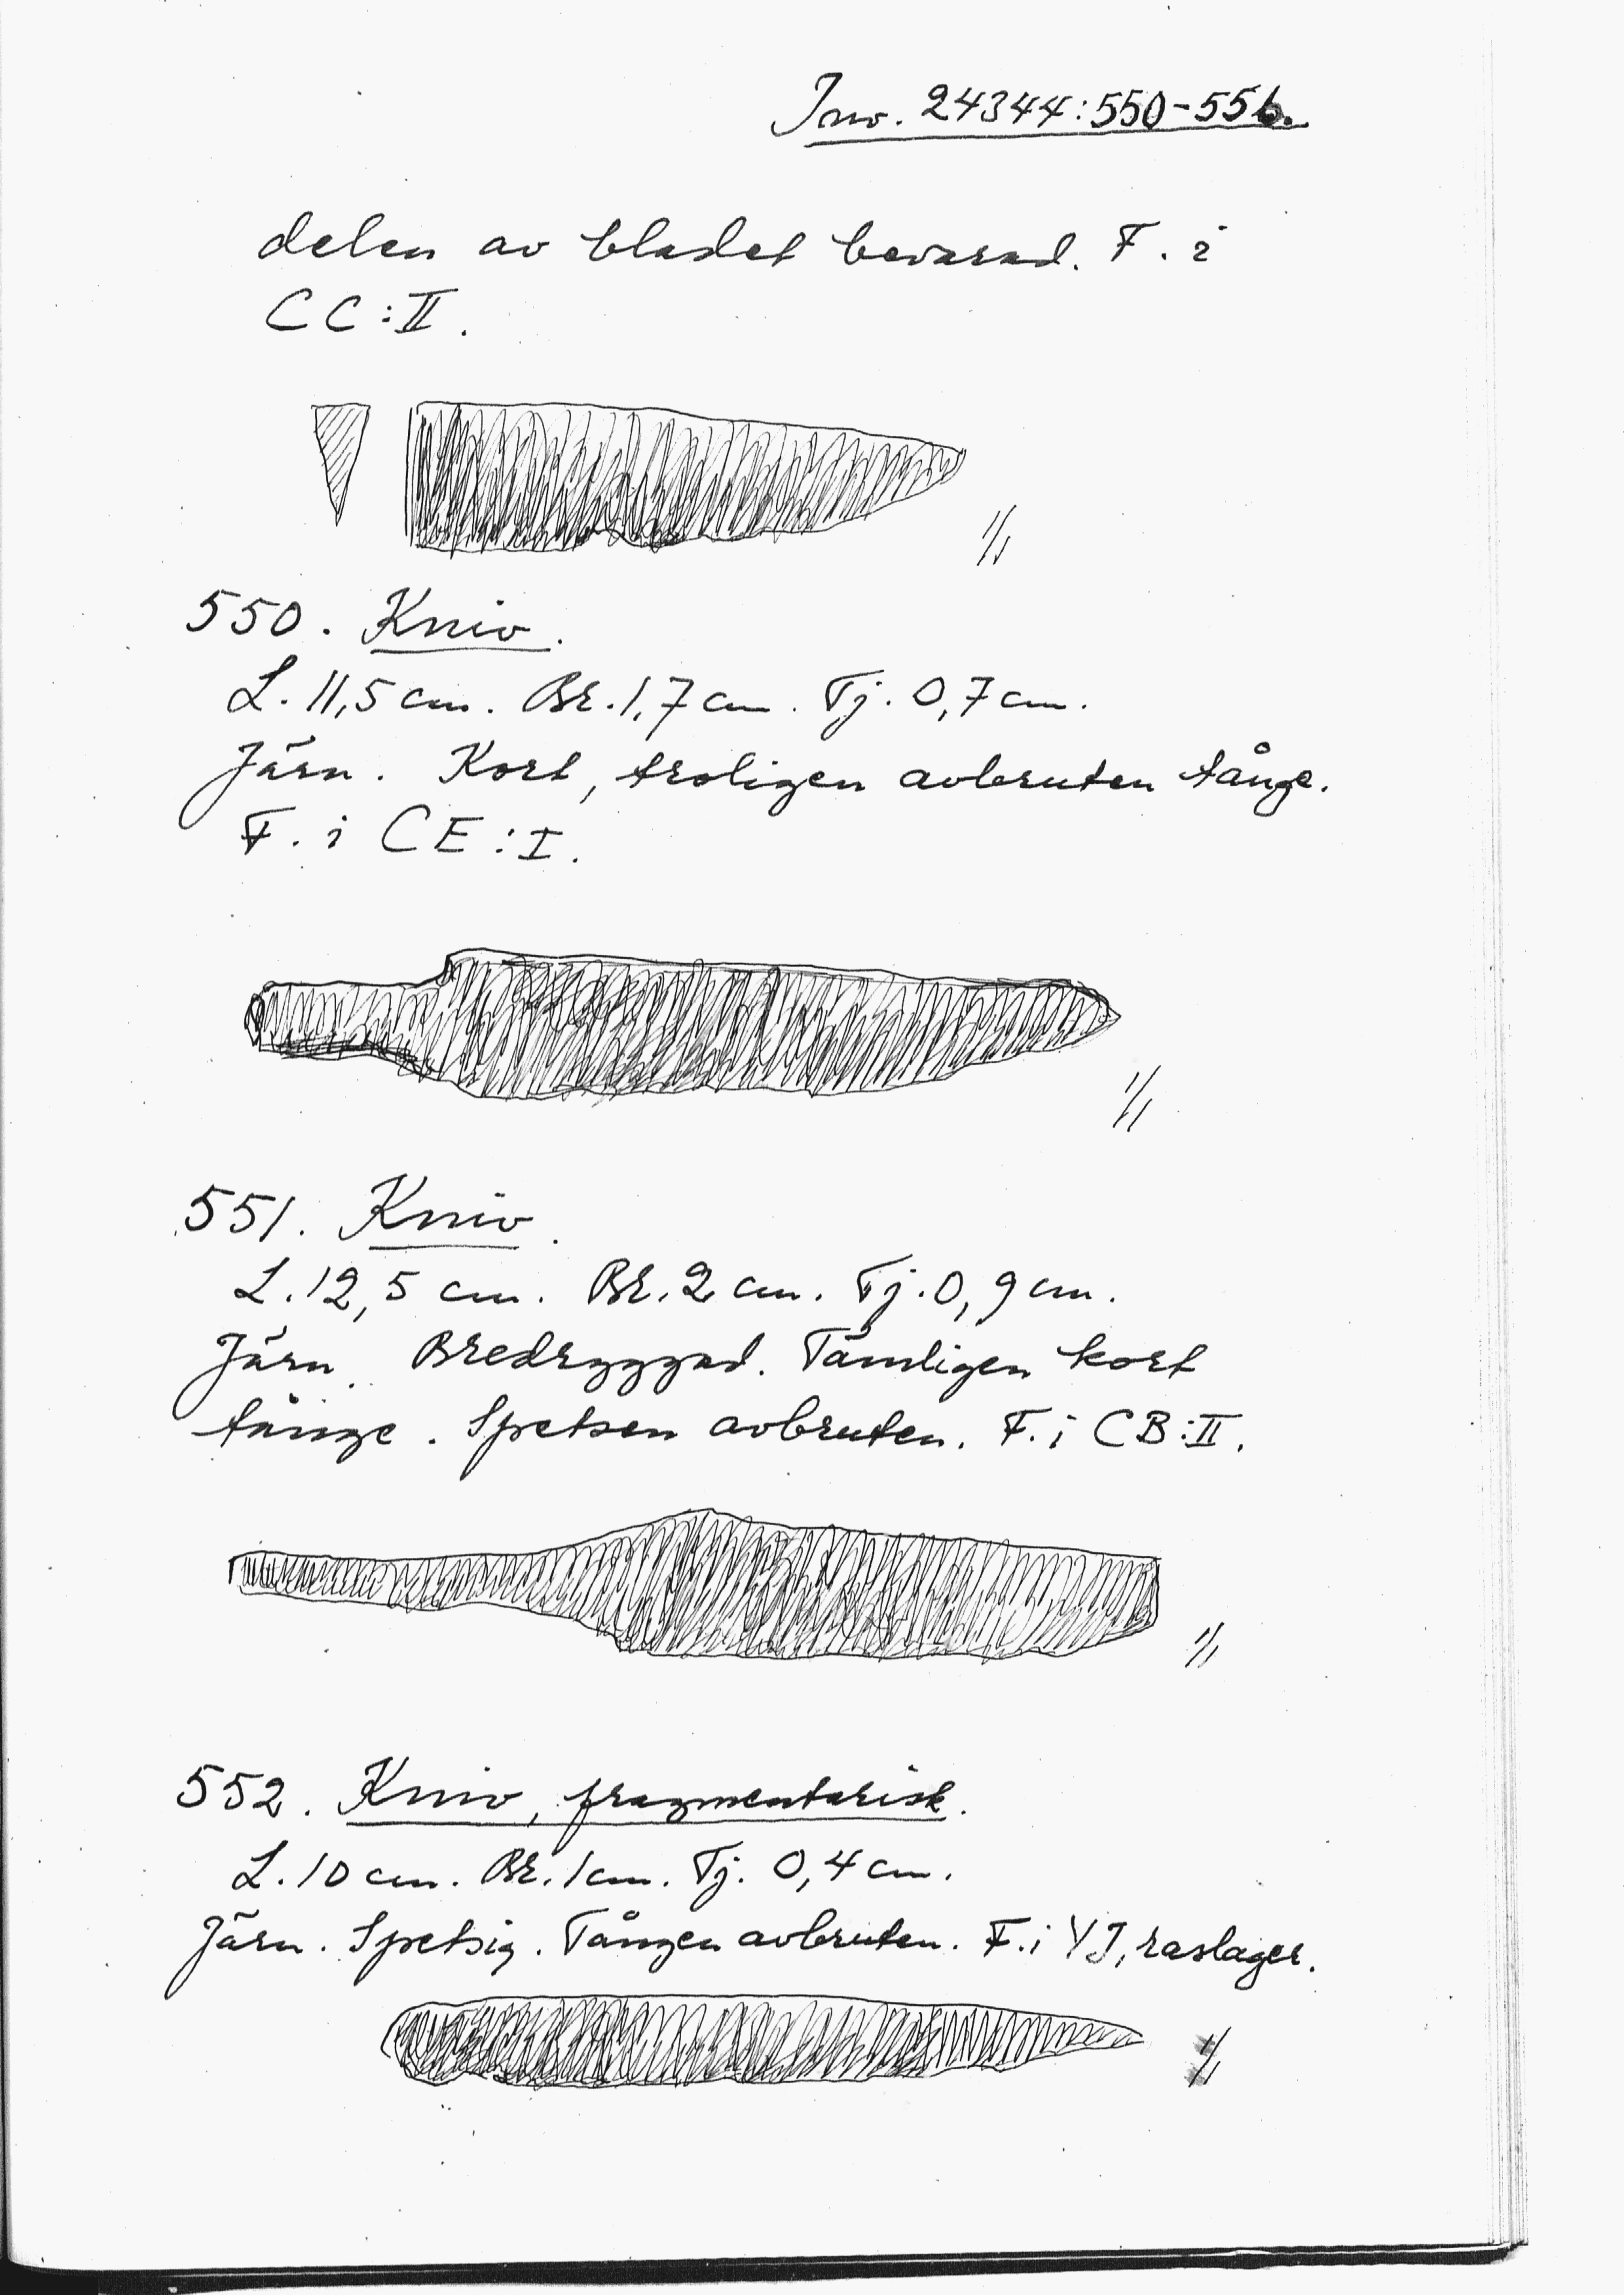 Inv. 24344:550-556.
delen av bladet bevarad. F. i
CC:II.
1/1
550. Kniv.
L. 11,5 cm. Br. 1,7 cm. Tj. 0,7 cm.
Järn. Kort, troligen avbruten tånge.
F. i CE:I.
1/1
551. Kniv.
L. 12,5 cm. Br. 2 cm. Tj. 0,9 cm.
Järn. Bredryggad. Tämligen kort
tånge. Spetsen avbruten. F. i CB:II.
1/1
552. Kniv, fragmentarisk.
L. 10 cm. Br. 1 cm. Tj. 0,4 cm.
Järn. Spetsig. Tången avbruten. F. i YJ, raslager.
1/1